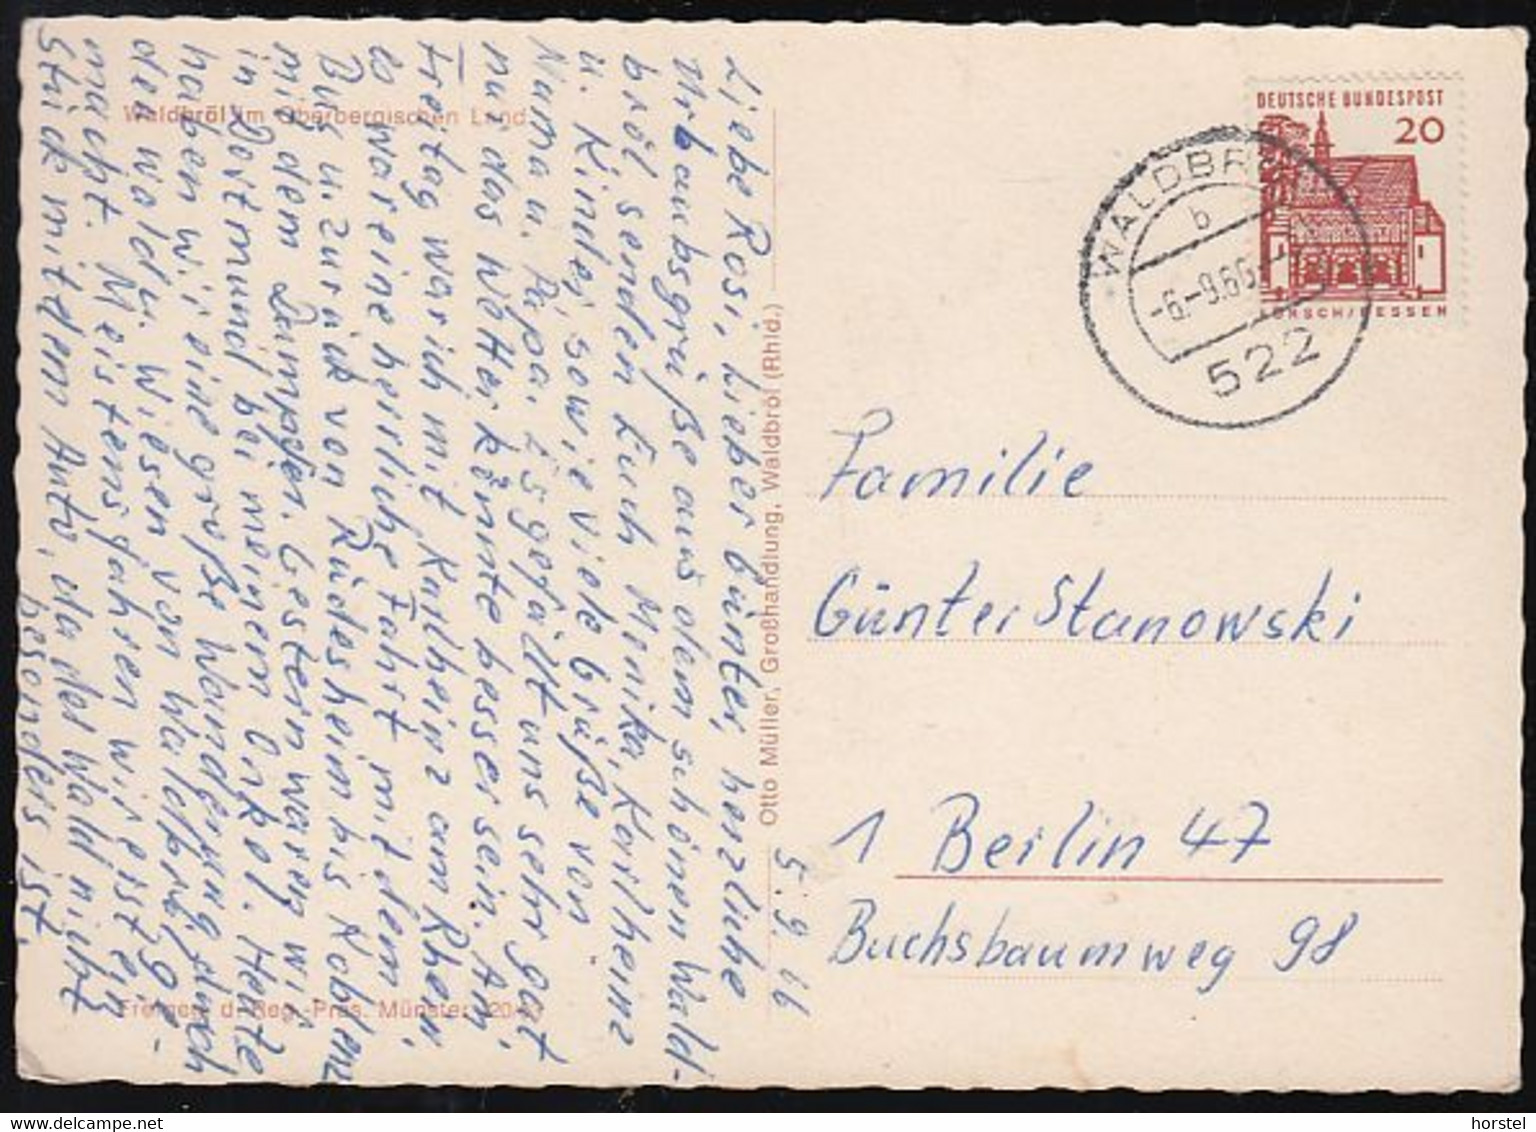 Waldbröl im Oberbergischen Land
5.9.66
Liebe Rosi, Lieber Günter, herzliche
Urlaubsgrüße aus dem schönen Wald-
bröl, senden Euch Monika, Karlheinz
u. Kinder, sowie viele Grüße von
Mama u. Papa. Es gefällt uns sehr gut
nur das Wetter könnte besser sein. Am
Freitag war ich mit Karlheinz am Rhein,
es war eine herrliche Fahrt mit dem
Bus u. zurück von Rüdesheim bis Koblenz
mit dem Dampfer. Gestern waren wir
in Dortmund bei meinem Onkel. Heute
haben wir eine große Wanderung durch
den Wald u. Wiesen von Waldbröl ge-
macht. Meistens fahren wir erst ein
Stück mit dem Auto, da der Wald nicht
besonders ist.
Freigeg. d. Reg.-Präs. Münster
Otto Müller, Großhandlung, Waldbröl (Rhld.)
DEUTSCHE BUNDESPOST
20
LORSCH/HESSEN
WALDBRÖL
b
-6.-9.66
522
Familie
Günter Stanowski
1 Berlin 47
Buchsbaumweg 98
horstel